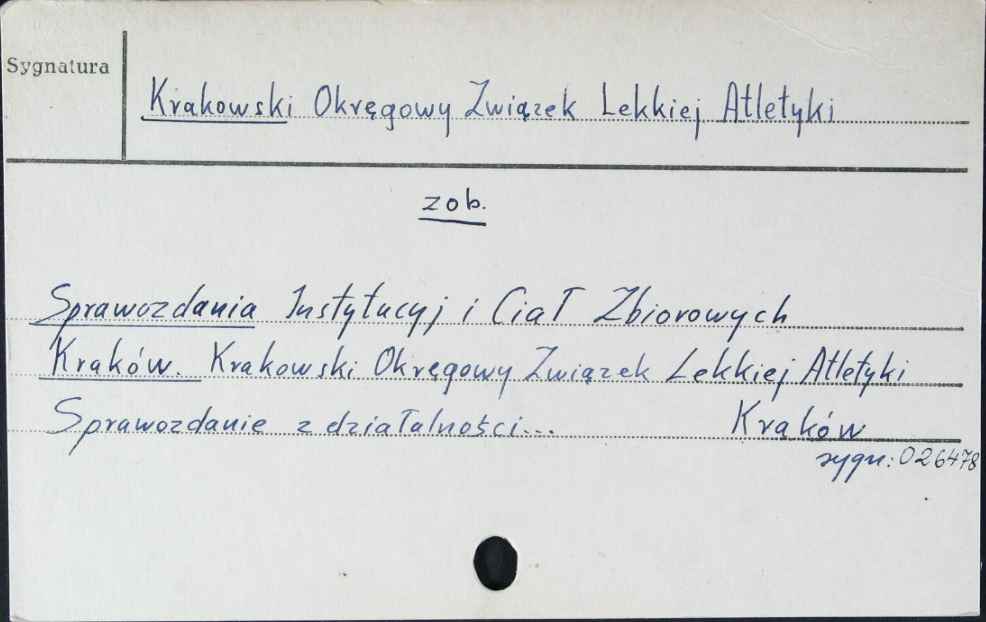 Sygnatura
Krakowski Okręgowy Związek Lekkiej Atletyki
zob.
Sprawozdania Instytucyj i Ciał Zbiorowych
Kraków. Krakowski Okręgowy Związek Lekkiej Atletyki
Sprawozdanie z działalności... Kraków
sygn.: 026478